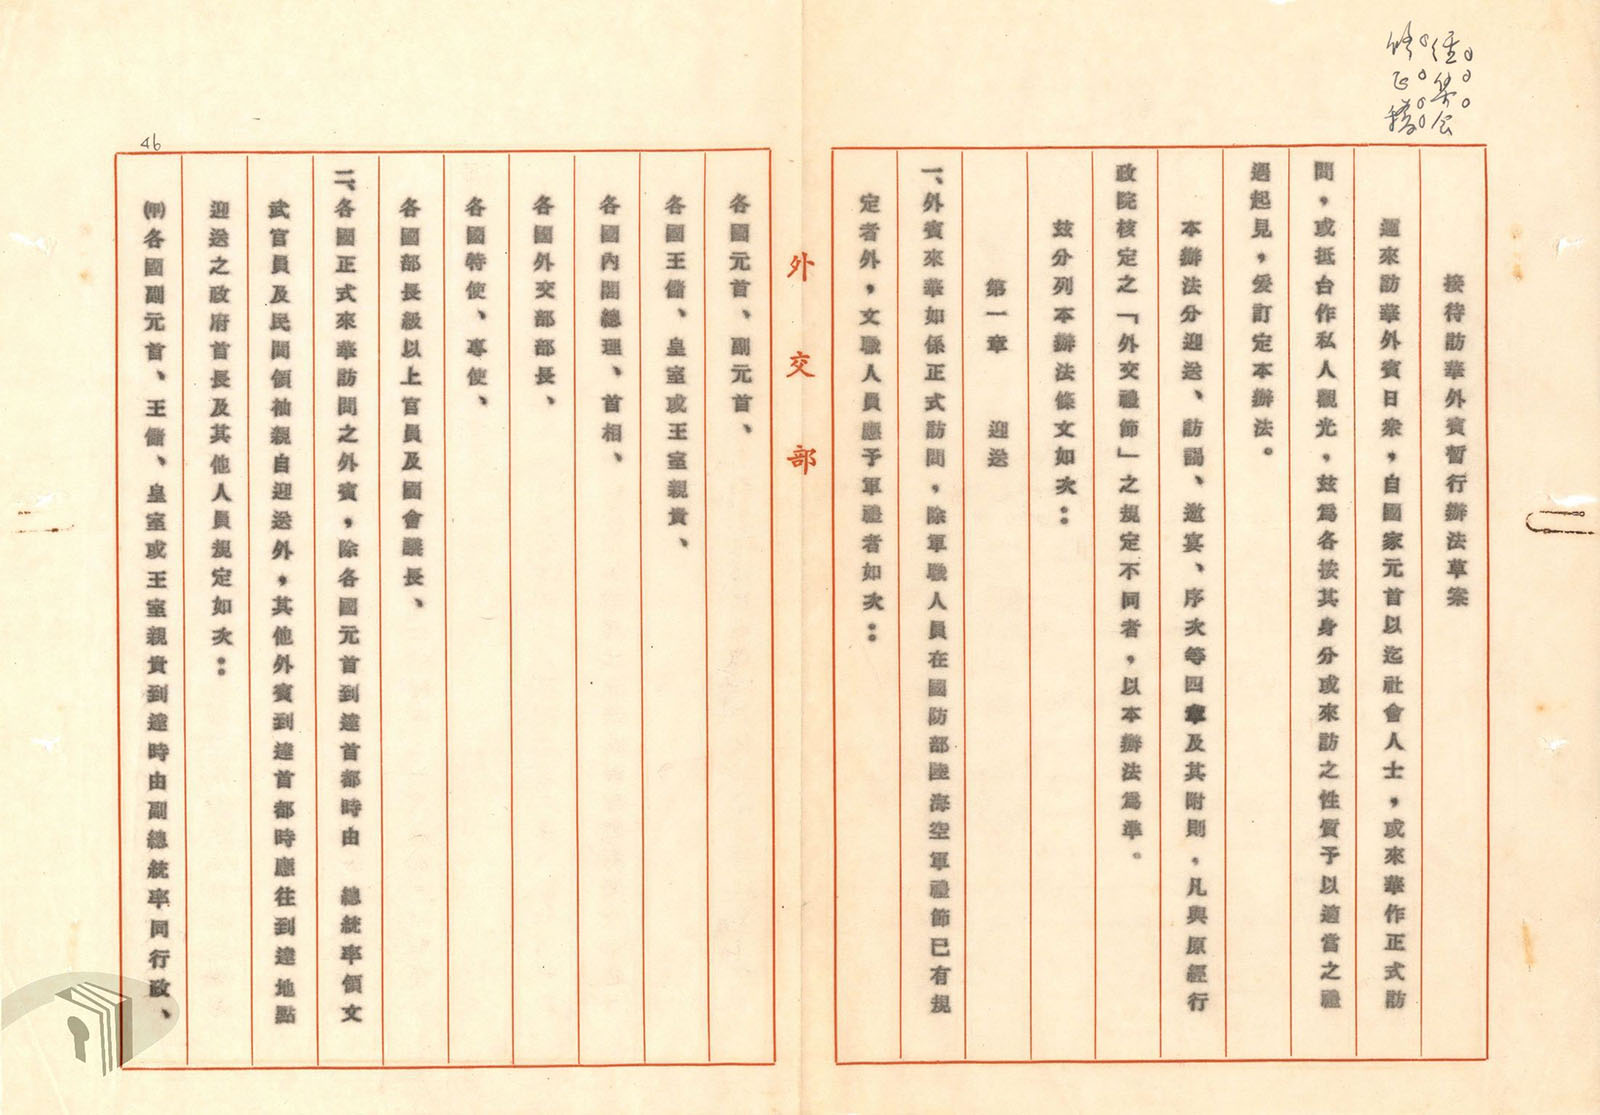 經集会
修正稿
接待訪華外賓暫行辦法草案
邇來訪華外賓日衆，自國家元首以迄社會人士，或來華作正式訪
問，或抵台作私人觀光，玆爲各按其身分或來訪之性質予以適當之禮
遇起見，爰訂定本辦法。
本辦法分迎送、訪謁、邀宴、序次等四章及其附則，凡與原經行
政院核定之「外交禮節」之規定不同者，以本辦法爲準。
玆分列本辦法條文如次：
第一章　迎送
一、外賓來華如係正式訪問，除軍職人員在國防部陸海空軍禮節已有規
定者外，文職人員應予軍禮者如次：
外交部
各國元首、副元首、
各國王儲、皇室或王室親貴、
各國內閣總理、首相、
各國外交部部長、
各國特使、專使、
各國部長級以上官員及國會議長、
二、各國正式來華訪問之外賓，除各國元首到達首都時由　總統率領文
武官員及民間領袖親自迎送外，其他外賓到達首都時應往到達地點
迎送之政府首長及其他人員規定如次：
㈙各國副元首、王儲、皇室或王室親貴到達時由副總統率同行政、
46